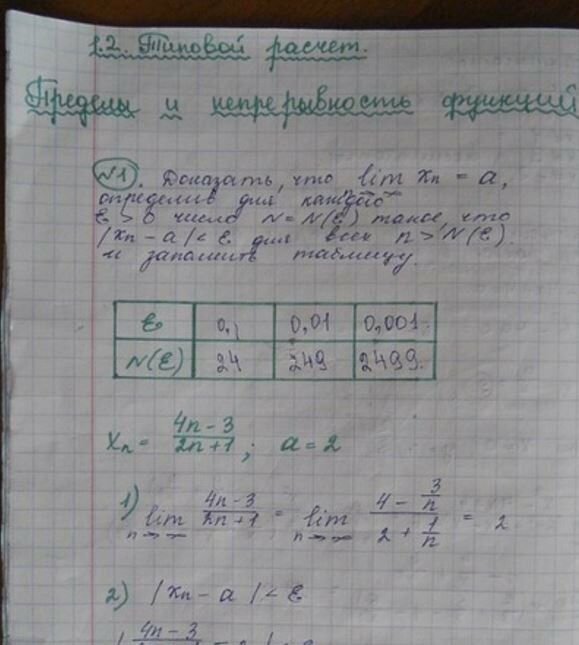 1.2. Типовой расчет.
Пределы и непрерывность функций
№1. Доказать, что lim xn = a,
n→∞
определив для каждого
ε > 0 число N = N(ε) такое, что
|xn - a| < ε для всех n > N(ε).
и заполнить таблицу.
ε 0,1 0,01 0,001.
N(ε) 24 249 2499.
xn = (4n - 3)/(2n + 1); a = 2
1) lim n→∞ (4n-3)/(2n+1) = lim n→∞ (4 - 3/n)/(2 + 1/n) = 2
2) |xn - a| < ε
4n - 3